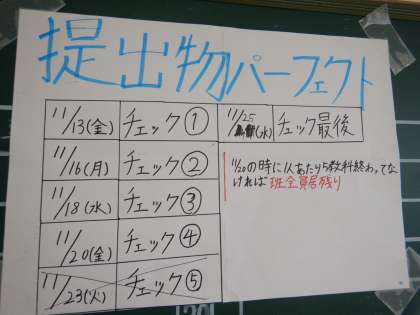 提出物パーフェクト
11/13(金) チェック①
11/16(月) チェック②
11/18(水) チェック③
11/20(金) チェック④
11/23(火) チェック⑤
11/25(水) チェック最後
11/20の時に1人あたり5教科終わってな
ければ班全員居残り